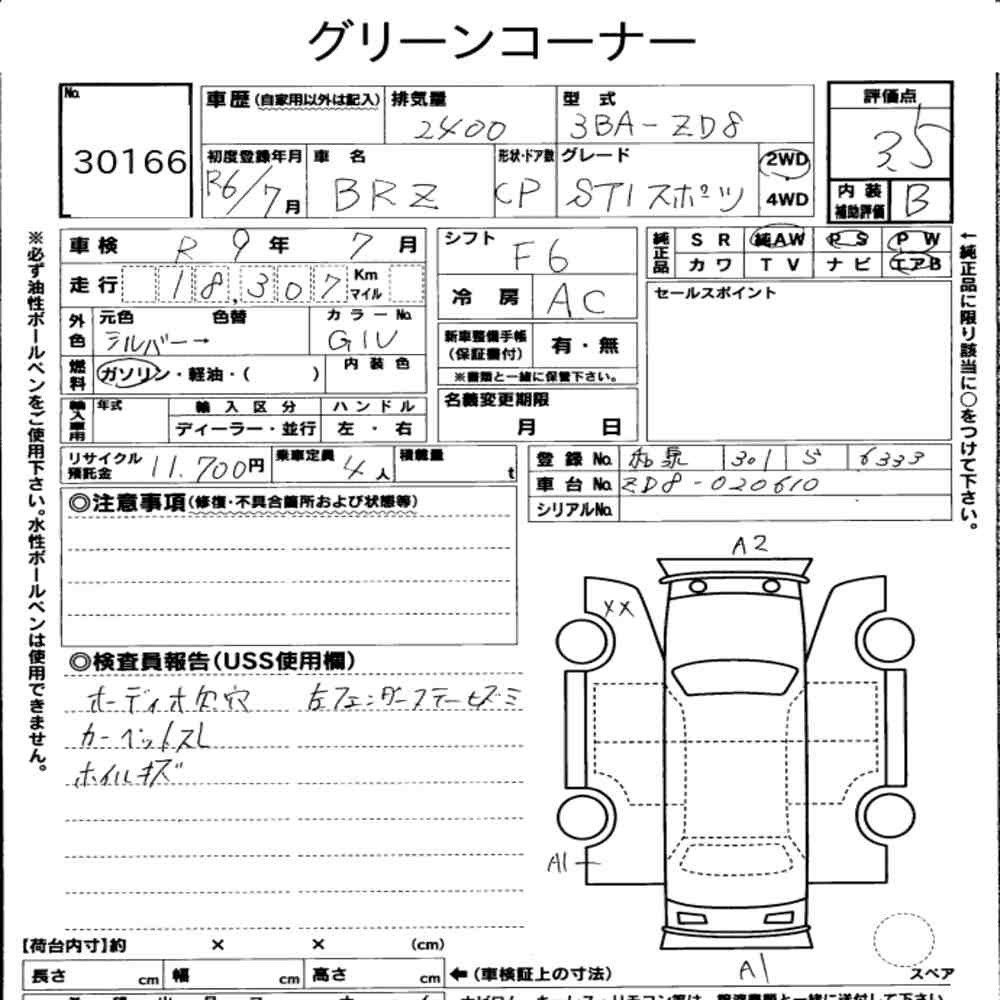 グリーンコーナー
No. 30166
車歴 (自家用以外は記入) 排気量 2400 型式 3BA-ZD8
初度登録年月 R6/7月 車名 BRZ 形状・ドア数 CP グレード STIスポーツ 2WD 4WD
評価点 3.5
内装補助評価 B
※必ず油性ボールペンをご使用下さい。水性ボールペンは使用できません。
車検 R9年 7月
走行 18,307 Km マイル
外色 元色 シルバー→ 色替 カラーNo. G1U
燃料 ガソリン・軽油・( ) 内装色
輸入車用 年式 輸入区分 ディーラー・並行 ハンドル 左・右
リサイクル預託金 11.700円 乗車定員 4人 積載量 t
シフト F6
冷房 AC
新車整備手帳(保証書付) 有・無
※書類と一緒に保管下さい。
名義変更期限 月 日
純正品 SR 純AW PS PW
カワ TV ナビ エアB
セールスポイント
←純正品に限り該当に○をつけて下さい。
登録No. 和泉 301 す 6333
車台No. ZD8-020610
シリアルNo.
◎注意事項(修復・不具合箇所および状態等)
◎検査員報告(USS使用欄)
オーディオ欠穴 左フェンダーステー上ズミ
カーペットスレ
ホイルキズ
A2
XX
A1
A1
スペア
【荷台内寸】約 × × (cm)
長さ cm 幅 cm 高さ cm ←(車検証上の寸法)